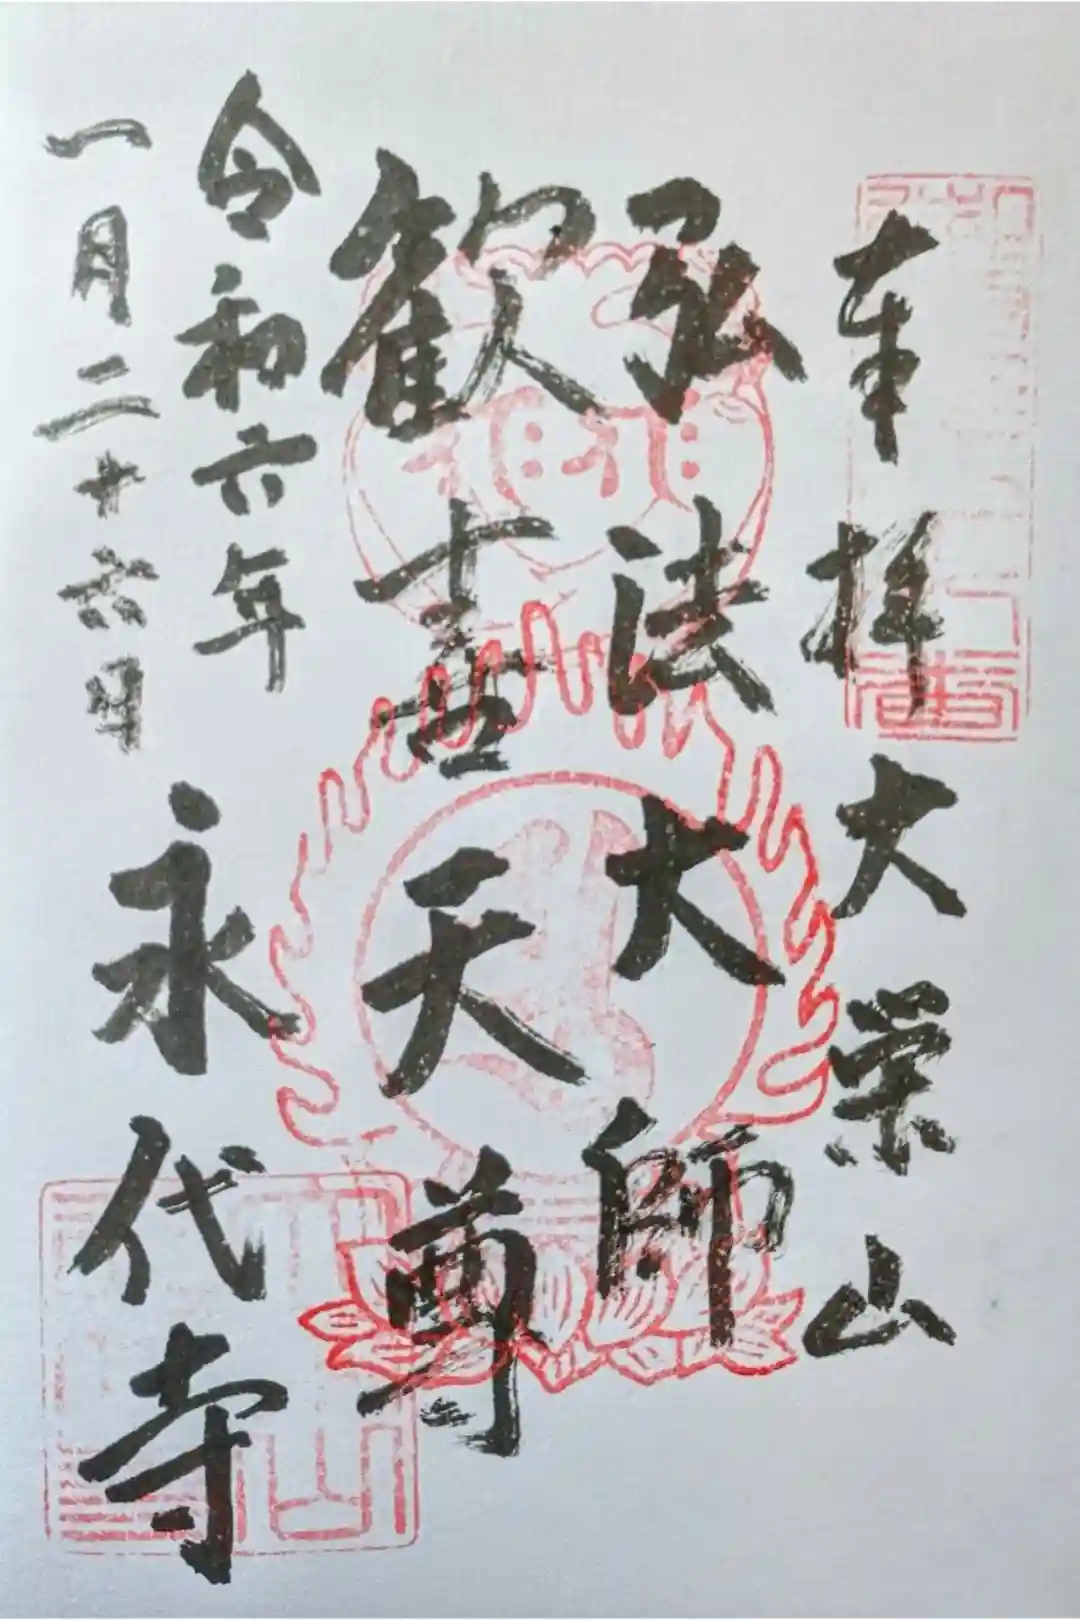 奉拝
大栄山
弘法大師
歓喜天尊
令和六年
一月二十六日
永代寺